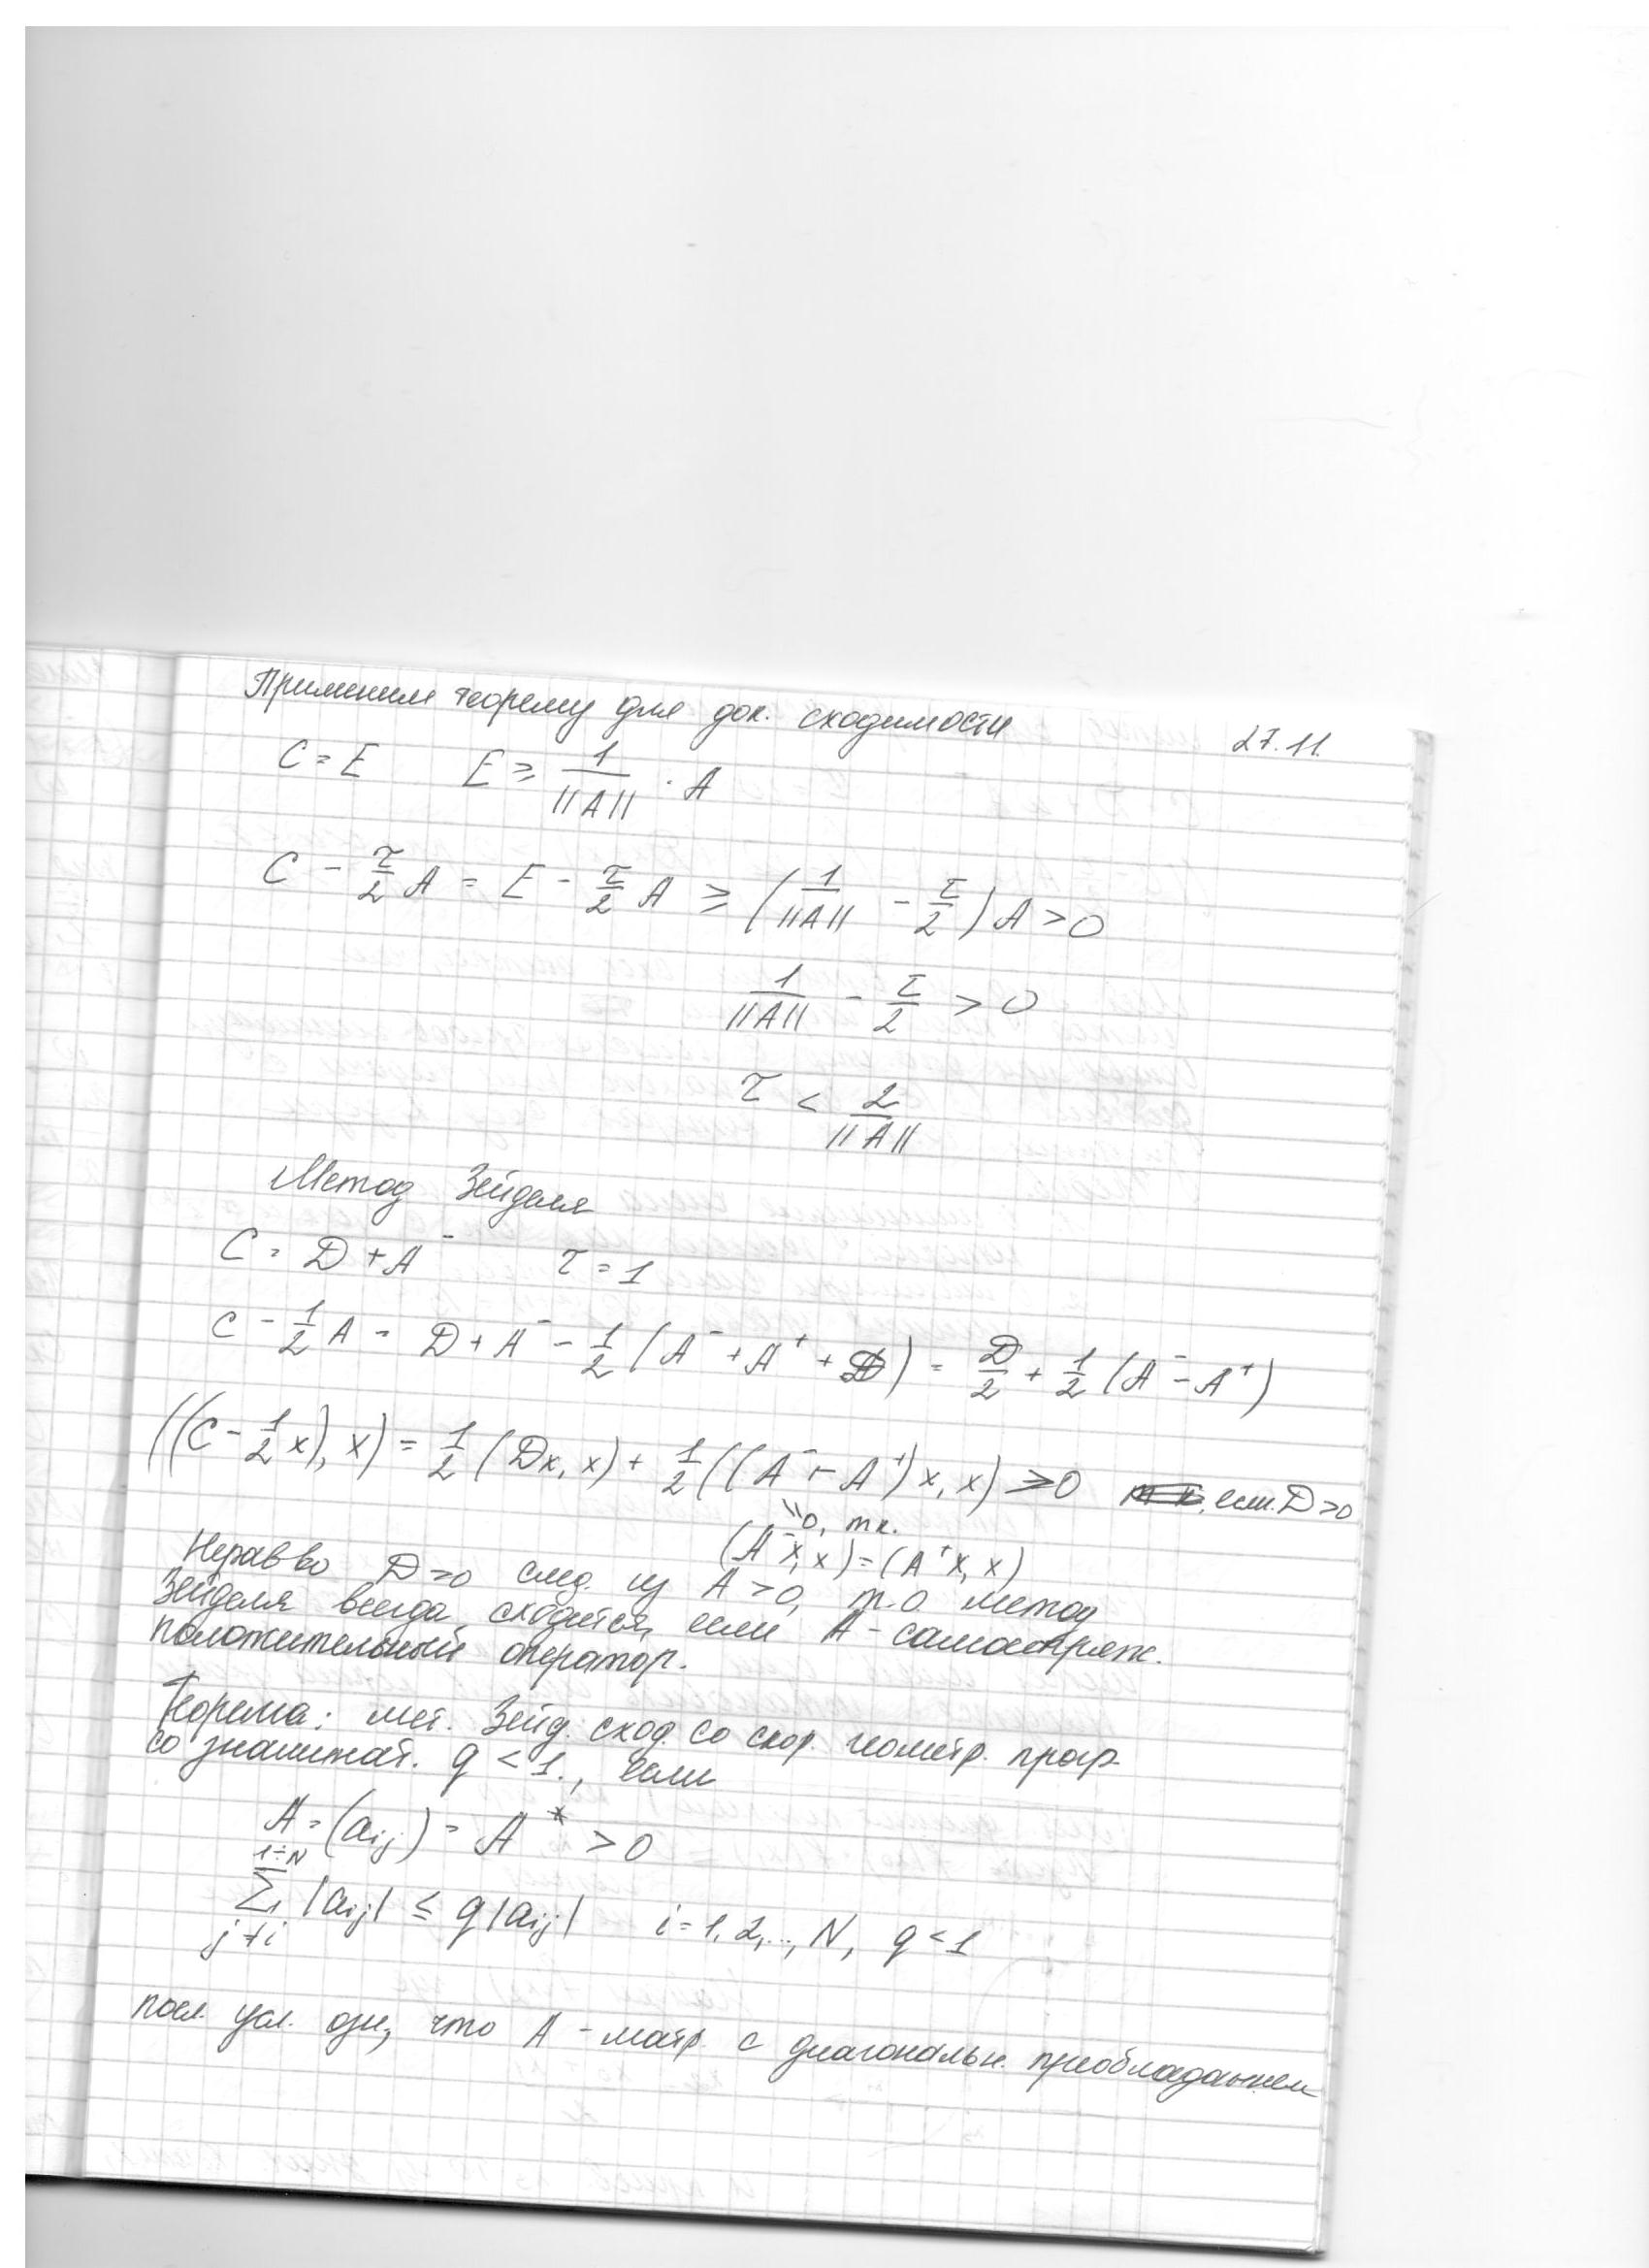 27.11.
Применим теорему для док. сходимости
C = E E ≥ 1/||A|| · A
C - τ/2 A = E - τ/2 A ≥ (1/||A|| - τ/2) A > 0
1/||A|| - τ/2 > 0
τ < 2/||A||
Метод Зейделя
C = D + A⁻ τ = 1
C - 1/2 A = D + A⁻ - 1/2 (A⁻ + A⁺ + D) = D/2 + 1/2 (A⁻ - A⁺)
((C - 1/2 x), x) = 1/2 (Dx, x) + 1/2 ((A⁻ - A⁺) x, x) ≥ 0 , если D > 0
0, т.к.
(A⁻x, x) = (A⁺x, x)
Нерав-во D > 0 след. из A > 0, т.о. метод
Зейделя всегда сходится, если A - самосопряж.
положительный оператор.
Теорема: мет. Зейд. сход. со скор. геометр. прогр.
со знаменат. q < 1., если
A = (aij) = A* > 0
1÷N
∑ |aij| ≤ q |aij| i = 1, 2, .., N, q < 1
j ≠ i
посл. усл. озн, что A - матр. с диагональн. приобладанием